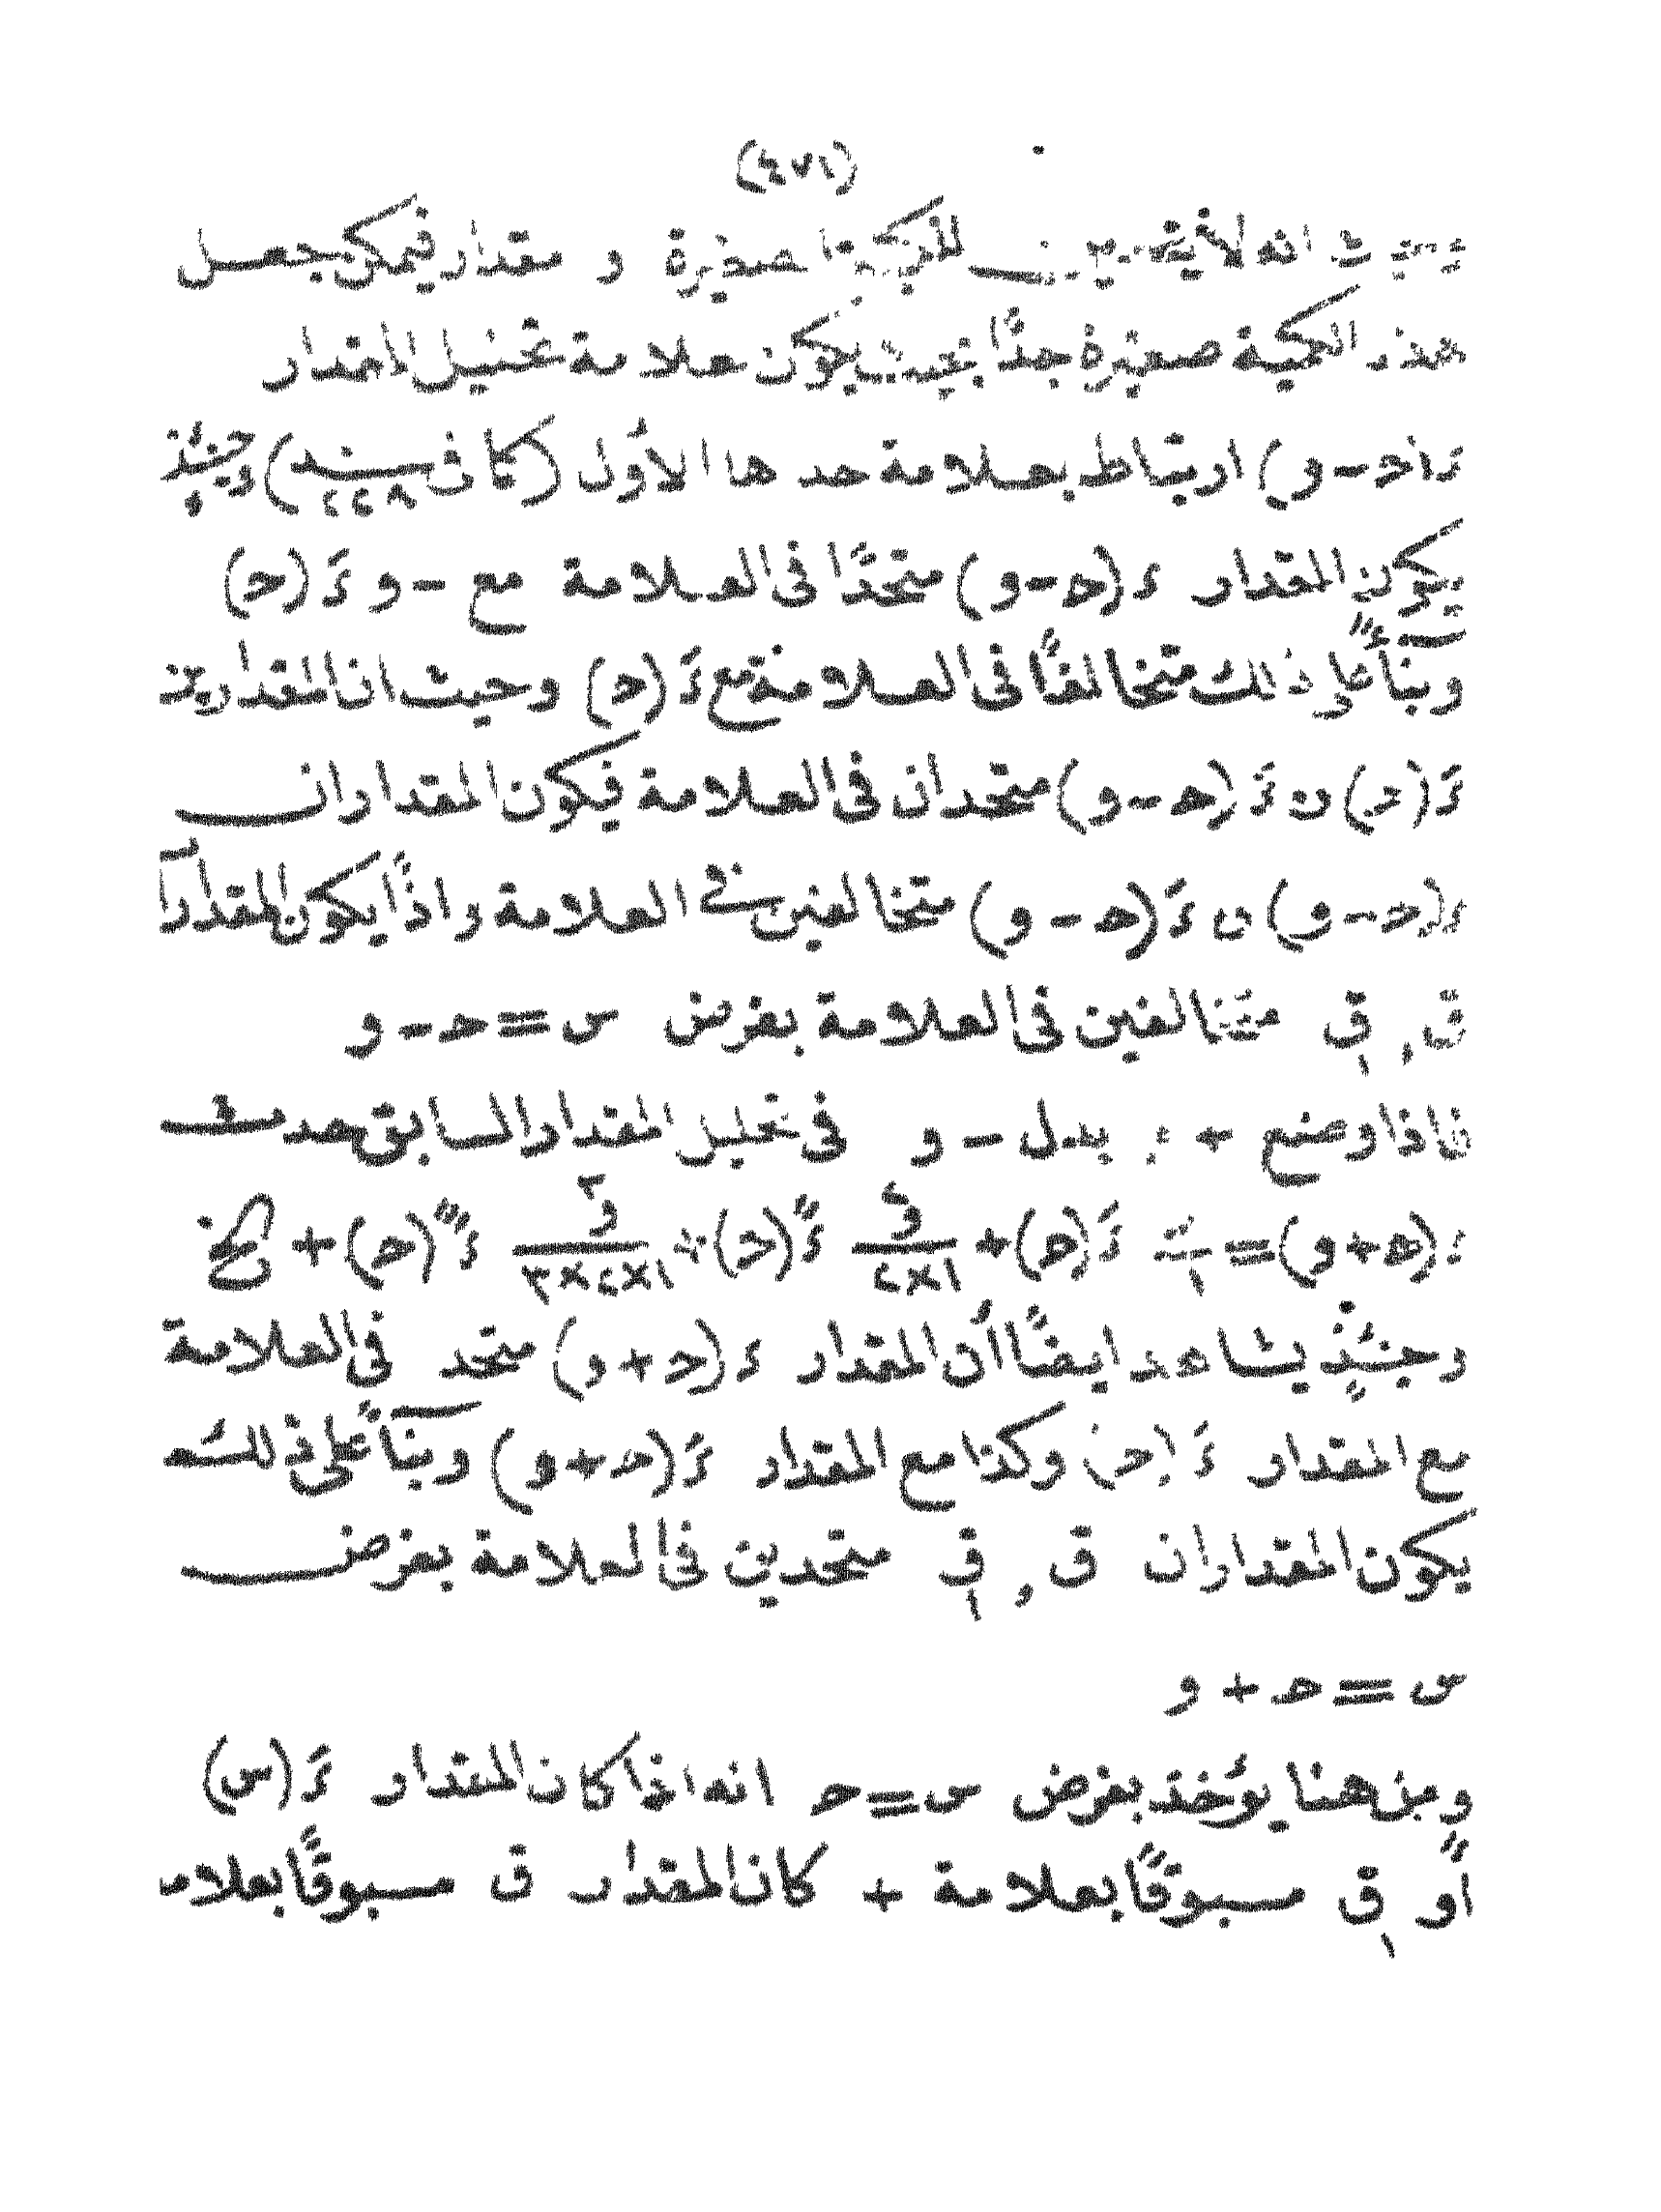 (٤٧١)
وحيث انه لا للكمية صغيرة و مقدار فيمكن جعل
هذه الكمية صغيرة جدًّا بحيث يكون علامة تحليل المقدار
د(حـ-و) ارتباط بعلامة حدها الأول (كما فى بند ٢٢٨) وحينئذ
يكون المقدار د(حـ-و) متحدًا فى العلامة مع -و دَ(حـ)
وبنآءً على ذلك متخالفًا فى العلامة مع دَ(حـ) وحيث ان المقدارين
دَ(حـ) ن دَ(حـ-و) متحدان فى العلامة فيكون المقداران
د(حـ-و) ن دَ(حـ-و) متخالفين فى العلامة واذًا يكون المقداران
ق, ق١ متخالفين فى العلامة بفرض س=حـ-و
فاذا وضع + و بدل -و فى تحليل المقدار السابق حدث
د(حـ+و)=و/١ دَ(حـ)+و٢/١×٢ دً(حـ)+و٣/١×٢×٣ د‴(حـ)+ الخ
وحينئذٍ يشاهد ايضًا أن المقدار د(حـ+و) متحد فى العلامة
مع المقدار دَ(حـ) وكذا مع المقدار دَ(حـ+و) وبنآءً على ذلك
يكون المقداران ق, ق١ متحدين فى العلامة بفرض
س=حـ+و
ومن هنا يؤخذ بفرض س=حـ انه اذا كان المقدار دَ(س)
أو ق١ مسبوقًا بعلامة + كان المقدار ق مسبوقًا بعلامة